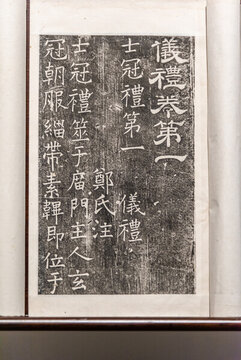 儀禮卷第一
士冠禮第一　儀禮
鄭氏注
士冠禮筮于庿門主人玄
冠朝服緇帶素韠即位于